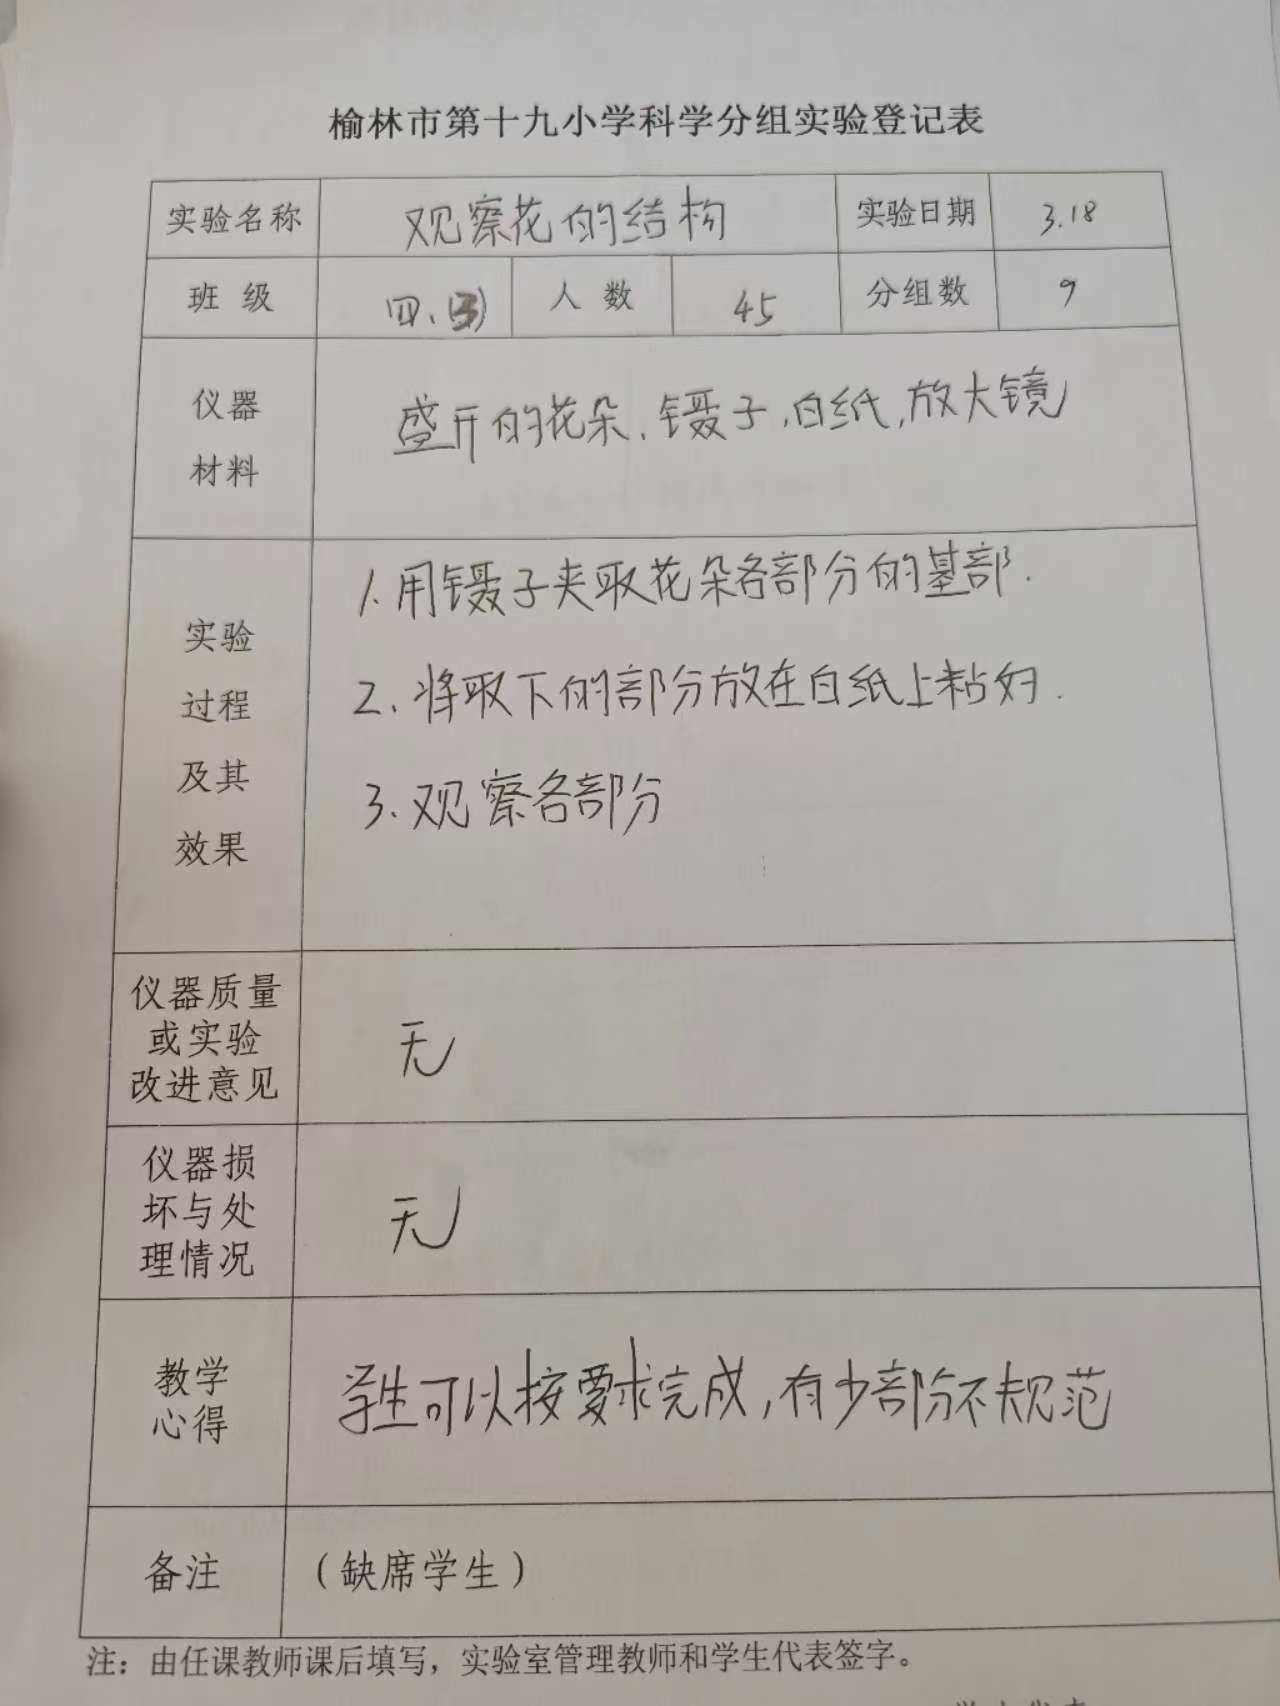 榆林市第十九小学科学分组实验登记表
实验名称 观察花的结构 实验日期 3.18
班 级 四.(3) 人 数 45 分组数 9
仪器
材料
盛开的花朵、镊子,白纸,放大镜
实验
过程
及其
效果
1.用镊子夹取花朵各部分的基部.
2.将取下的部分放在白纸上粘好.
3.观察各部分
仪器质量
或实验
改进意见
无
仪器损
坏与处
理情况
无
教学
心得
学生可以按要求完成,有少部份不规范
备注 (缺席学生)
注：由任课教师课后填写，实验室管理教师和学生代表签字。